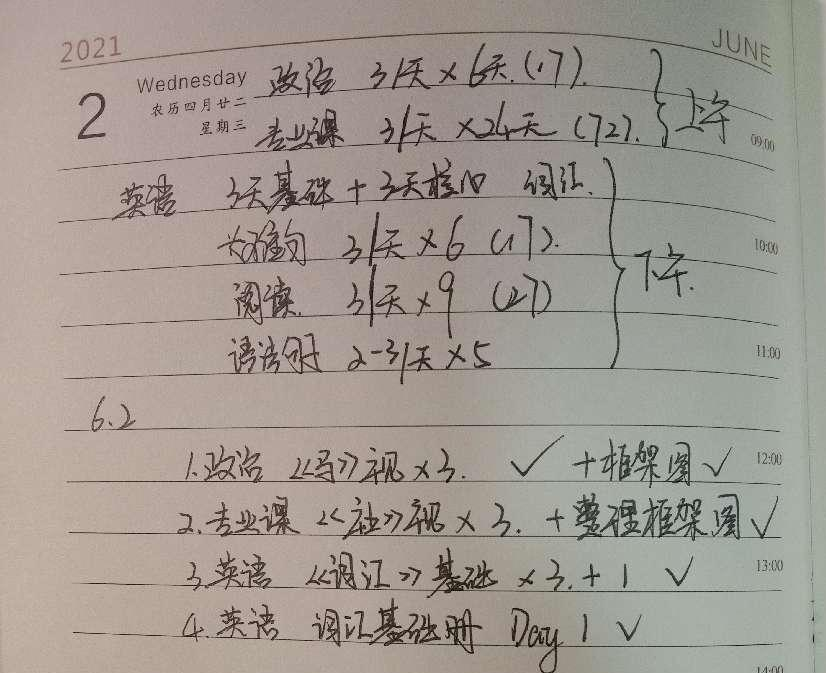 2021 JUNE
2 Wednesday 农历四月廿二 星期三
政治 3/天×6天.(17). 上午
专业课 3/天×24天 (72).
09:00
英语 3天基础+3天核心 词汇.
长难句 3/天×6 (17).
10:00
下午.
阅读. 3/天×9 (27)
语法句子 2-3/天×5
11:00
6.2
1.政治 《马》视×3. ✓ +框架图✓
12:00
2.专业课 《社》视×3. +整理框架图✓
3.英语 《词汇》基础×3.+1 ✓
13:00
4.英语 词汇基础册 Day 1 ✓
14:00